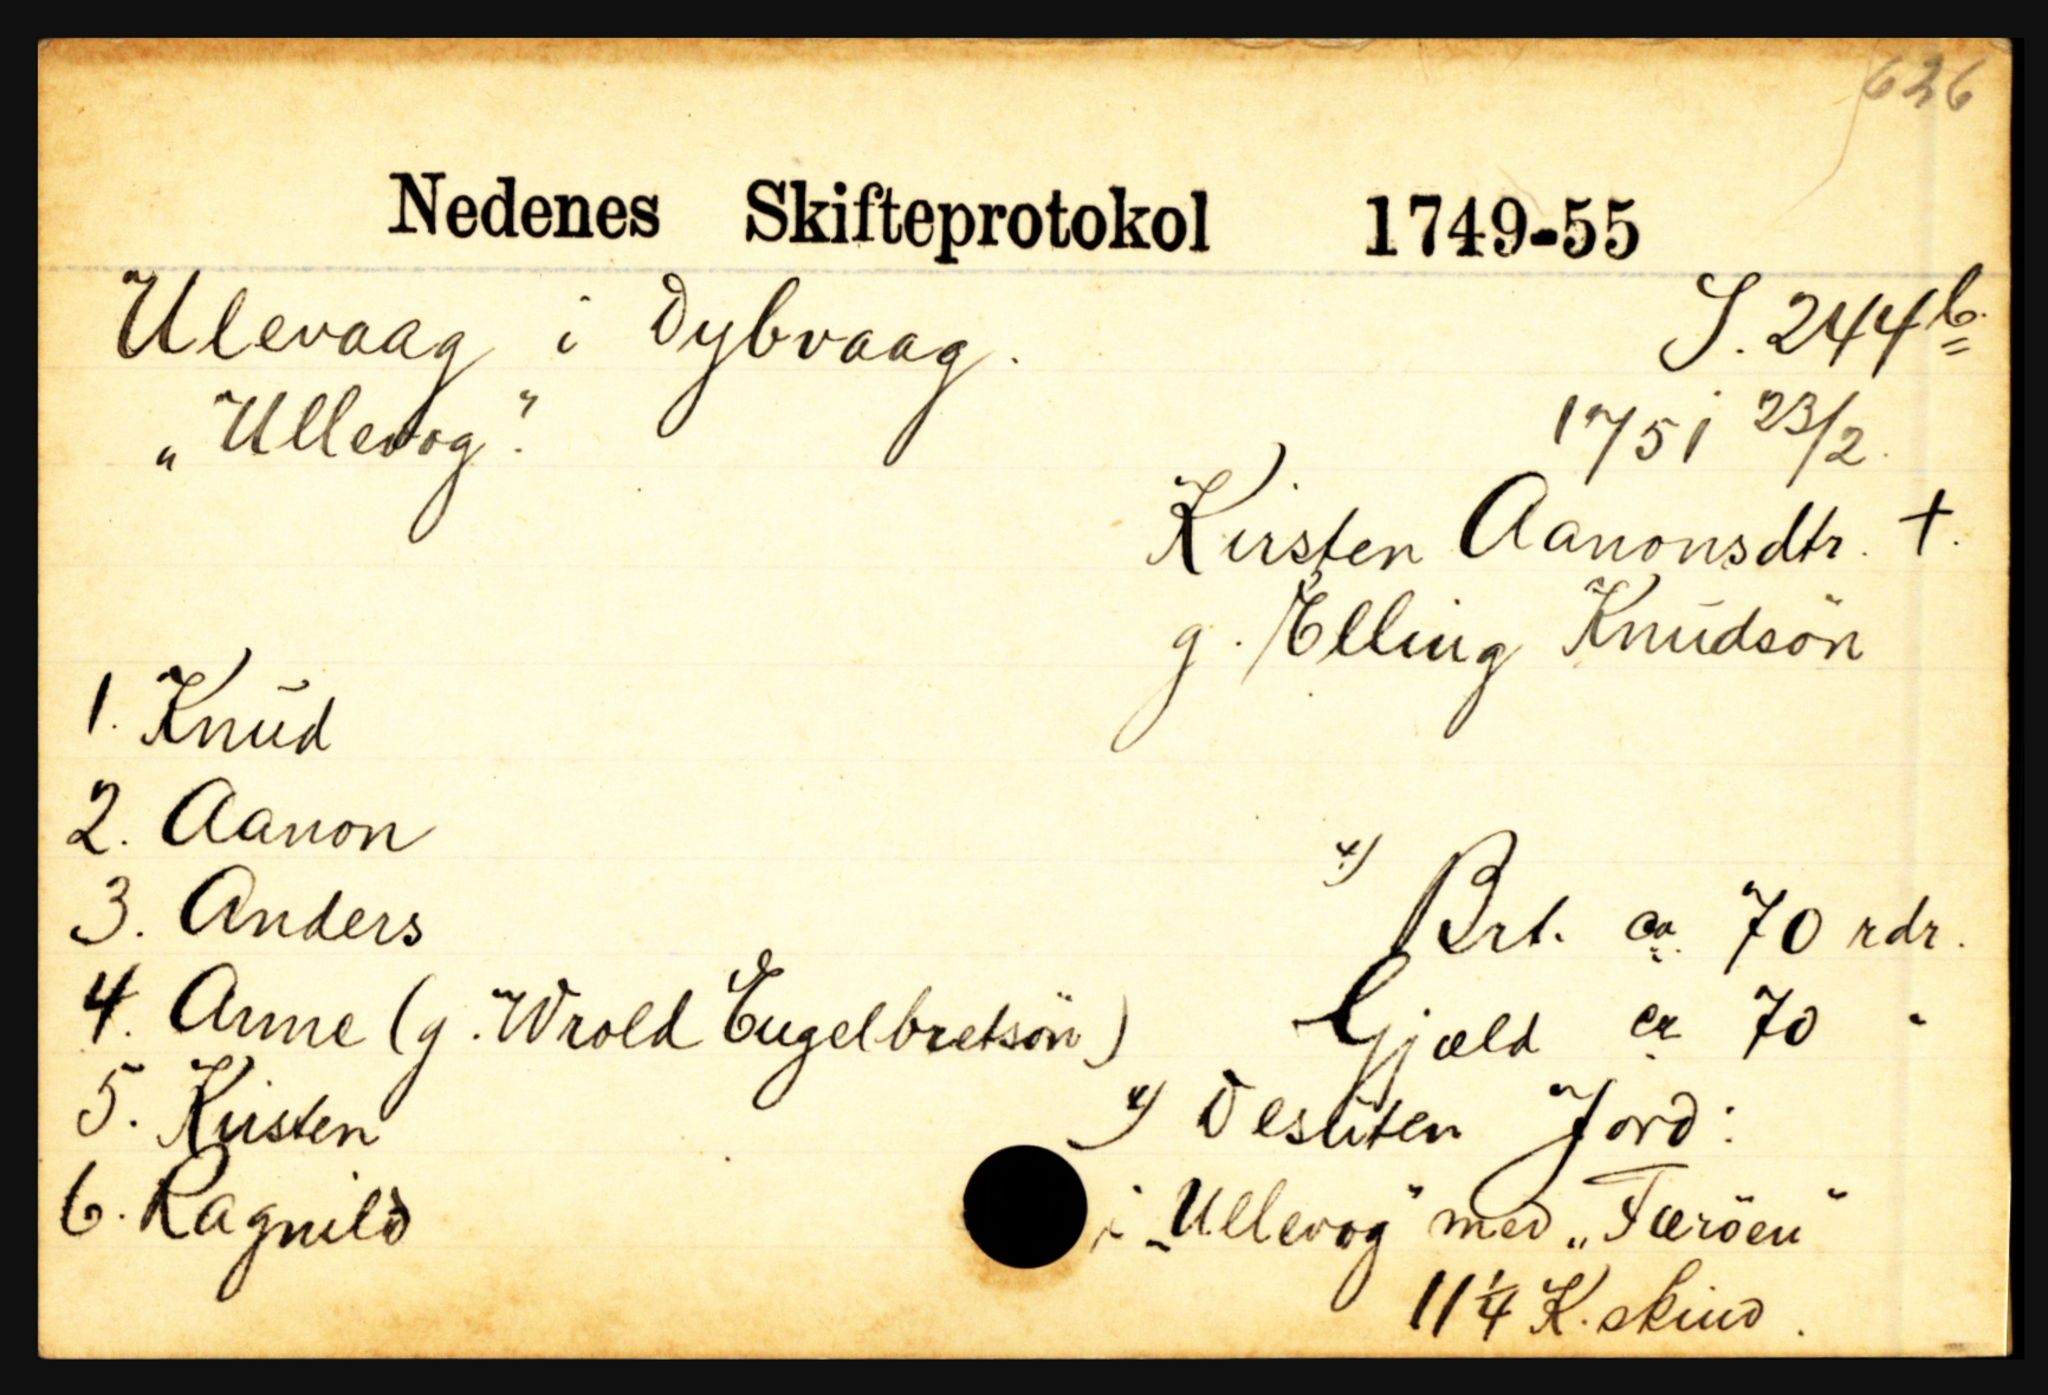 626
Nedenes Skifteprotokol 1749-55
Ulevaag i Dybvaag. S. 244b.
„Ullevog". 1751 23/2.
Kirsten Aanonsdtr. †.
g. Elling Knudsön
1. Knud
2. Aanon
3. Anders
4. Anne (g. Wrold Engelbretsön)
5. Kirsten
6. Ragnild
x) Brt. ca. 70 rdr.
Gjæld ca 70 "
x) Desuten Jord:
i „Ullevog" med „Færöen"
11 1/4 K. skind.